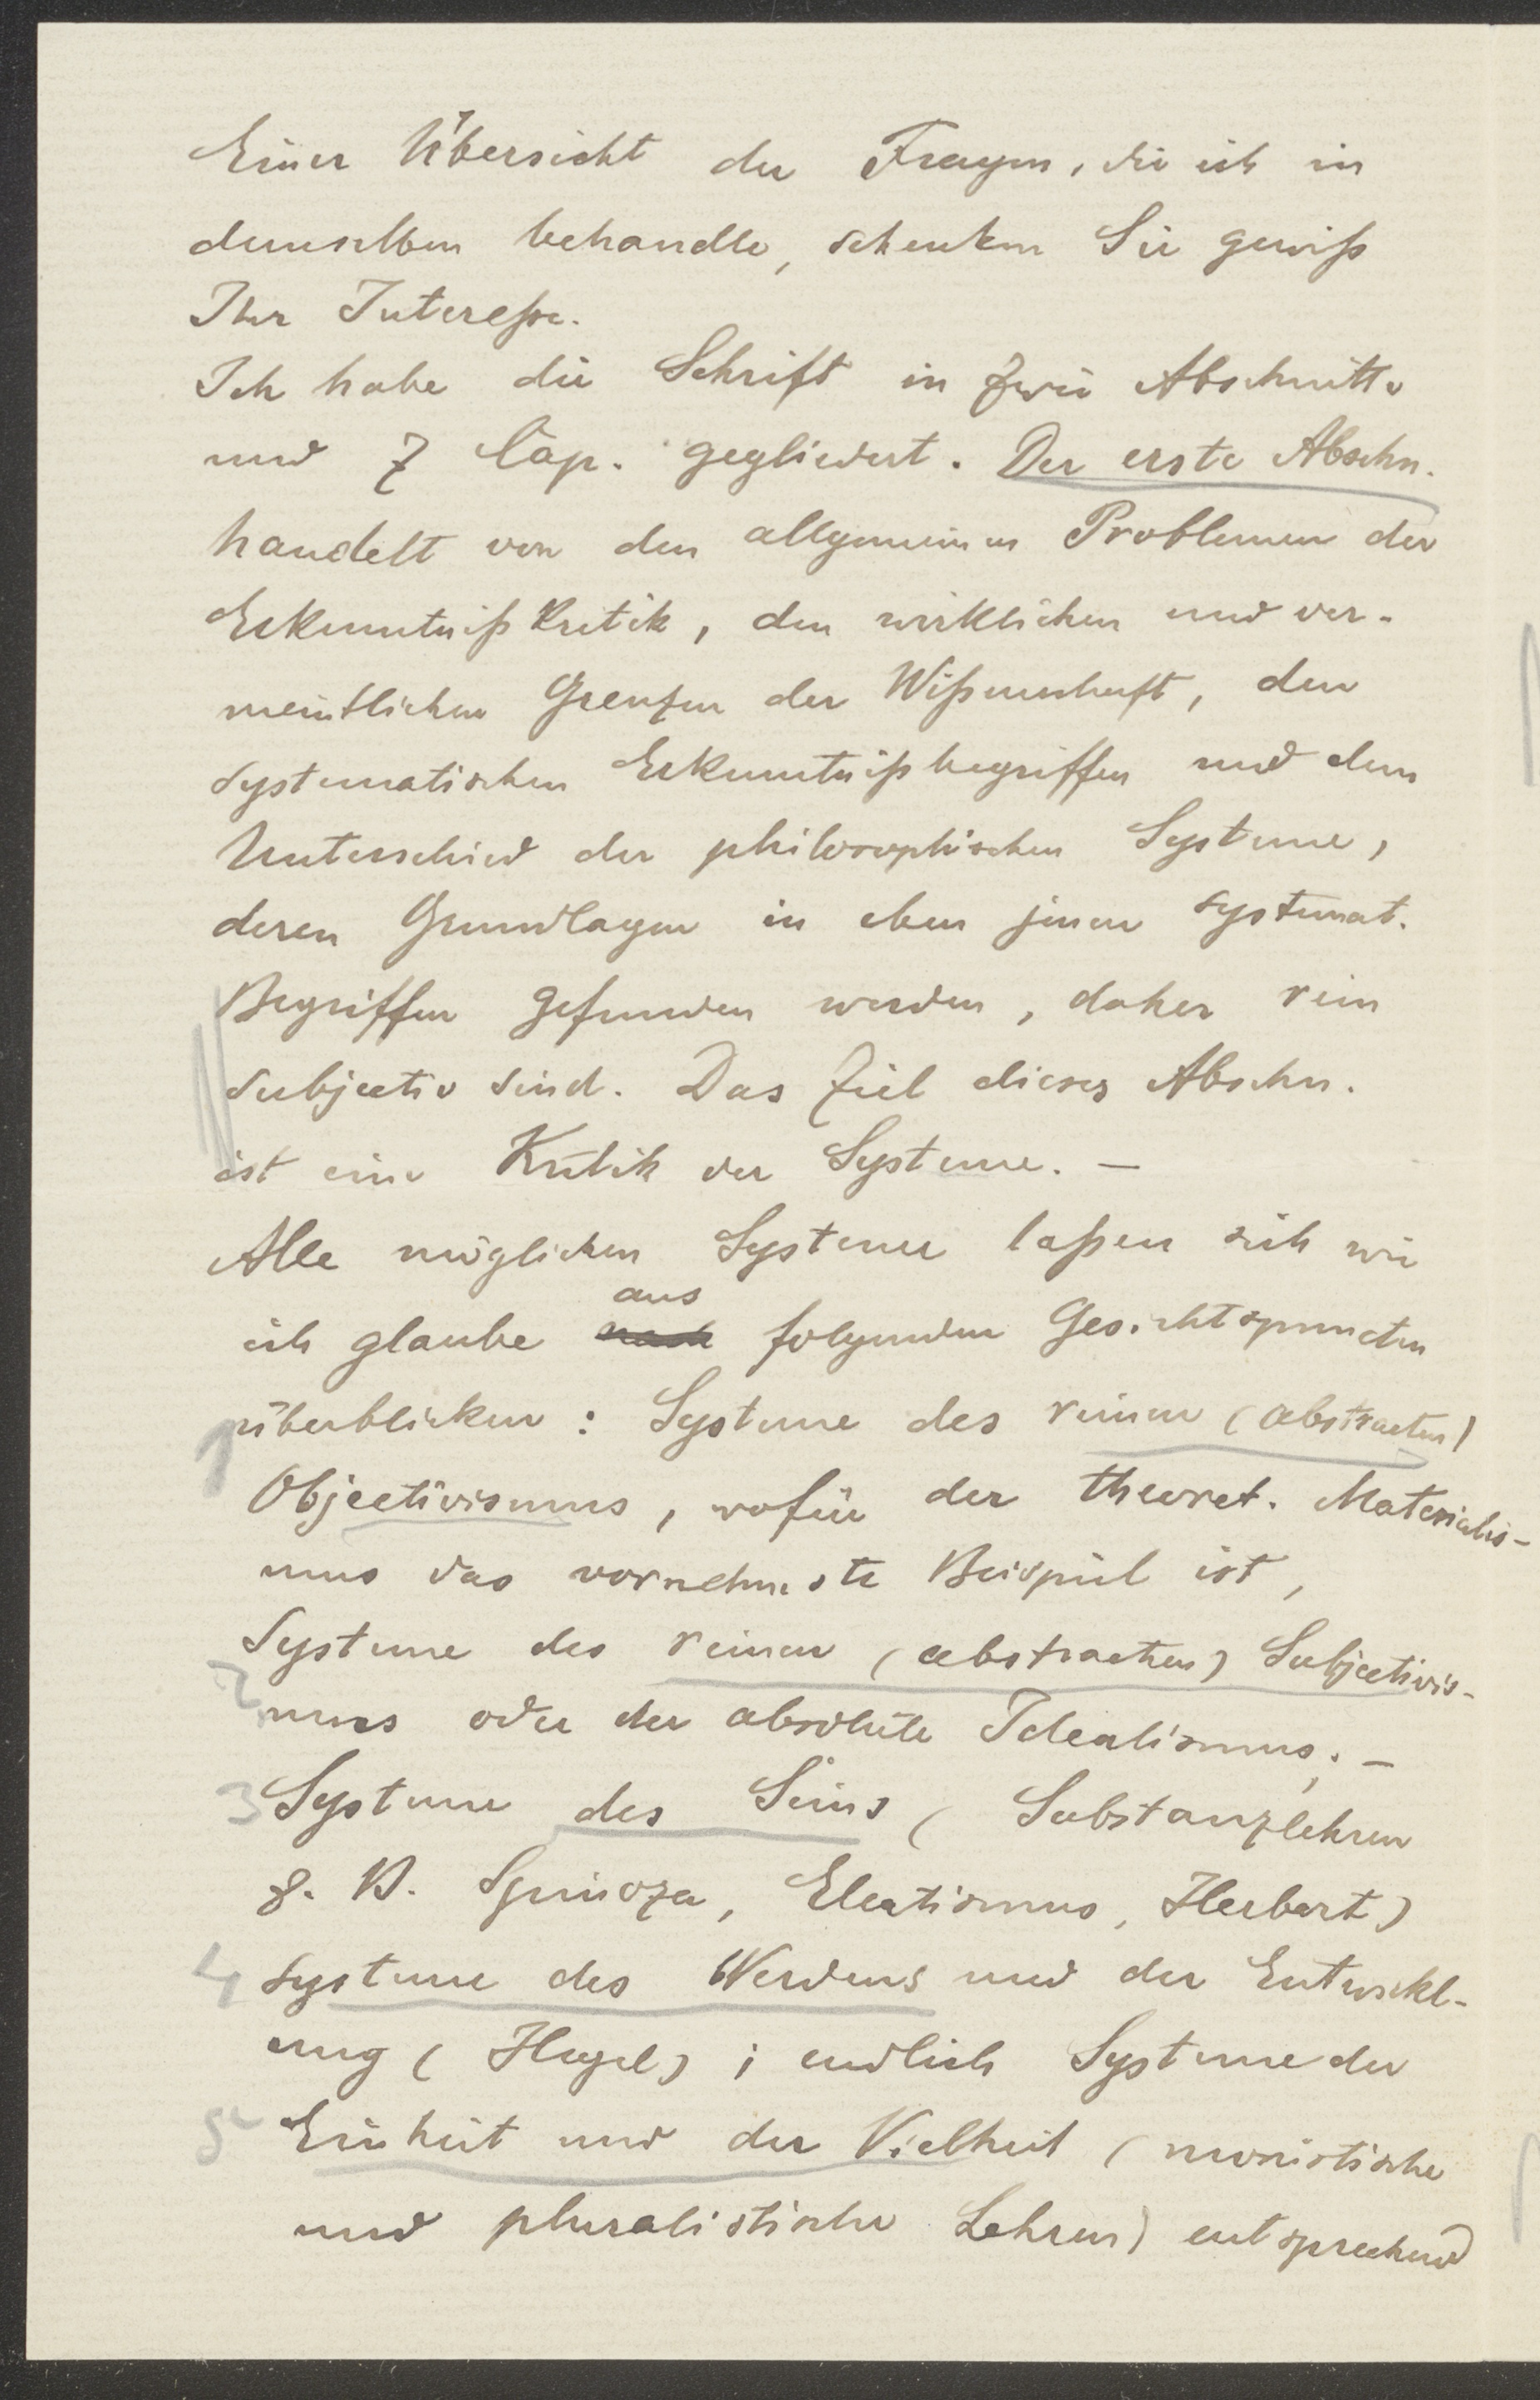 Einer Übersicht der Fragen, die ich in
demselben behandle, schenken Sie gewiß
Ihr Intereße.
Ich habe die Schrift in zwei Abschnitte
und 7 Cap. gegliedert. Der erste Abschn.
handelt von den allgemeinen Problemen der
Erkenntnißkritik, den wirklichen und ver-
meintlichen Grenzen der Wißenschaft, den
systematischen Erkenntnißbegriffen und dem
Unterschied der philosophischen Systeme,
deren Grundlagen in eben jenen systemat.
Begriffen gefunden werden, daher rein
subjectiv sind. Das Ziel dieses Abschn.
ist eine Kritik der Systeme. —
Alle möglichen Systeme laßen sich wie
aus
ich glaube nach folgenden Gesichtspuncten
1 überblicken: Systeme des reinen (abstracten)
Objectivismus, wofür der theoret. Materialis-
mus das vornehmste Beispiel ist,
2 Systeme des reinen (abstracten) Subjectivis-
mus oder der absolute Idealismus; —
3 Systeme des Seins (Substanzlehren
z. B. Spinoza, Eleatismus, Herbart)
4 Systeme des Werdens und der Entwickl-
ung (Hegel); endlich Systeme der
5 Einheit und der Vielheit (monistische
und pluralistische Lehren) entsprechend